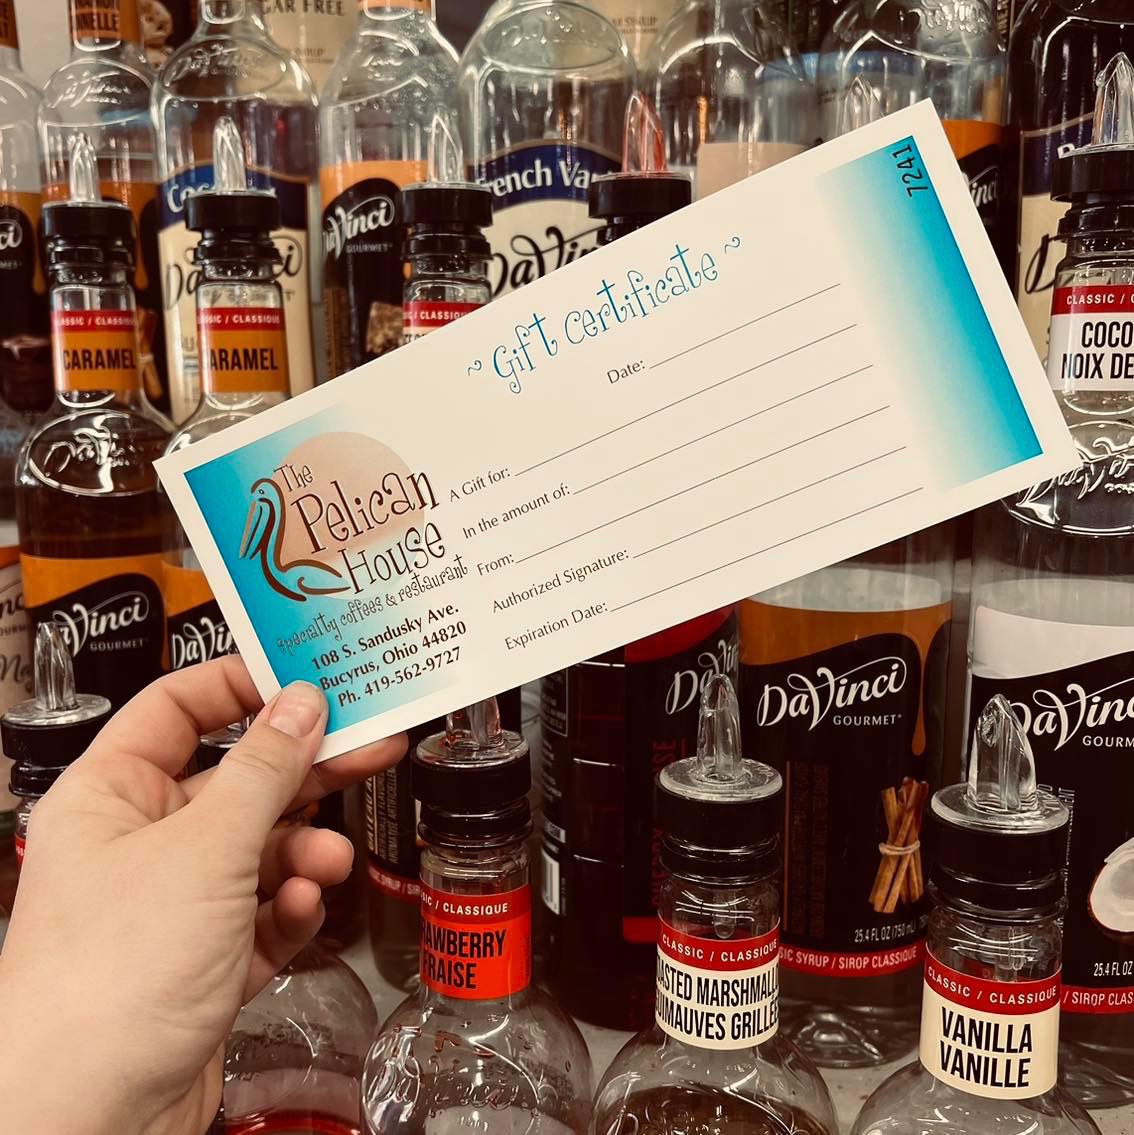 ~ Gift certificate ~
7241
Date:
A Gift for:
In the amount of:
From:
Authorized Signature:
Expiration Date:
The
Pelican
House
specialty coffees & restaurant
108 S. Sandusky Ave.
Bucyrus, Ohio 44820
Ph. 419-562-9727
CLASSIC / CLASSIQUE
CARAMEL
CARAMEL
DaVinci
GOURMET
French Va
DaVinci
DaVinci
GOURMET
CLASSIC / C
COCO
NOIX DE
DaVinci
GOURMET
25.4 FL OZ (750 mL)
SIC SYRUP / SIROP CLASSIQUE
DaVinc
GOURM
25.4 FL OZ
/ SIROP CLAS
SIC / CLASSIQUE
RAWBERRY
FRAISE
CLASSIC / CLASSIQUE
ASTED MARSHMALL
UIMAUVES GRILLÉE
CLASSIC / CLASSIQUE
VANILLA
VANILLE